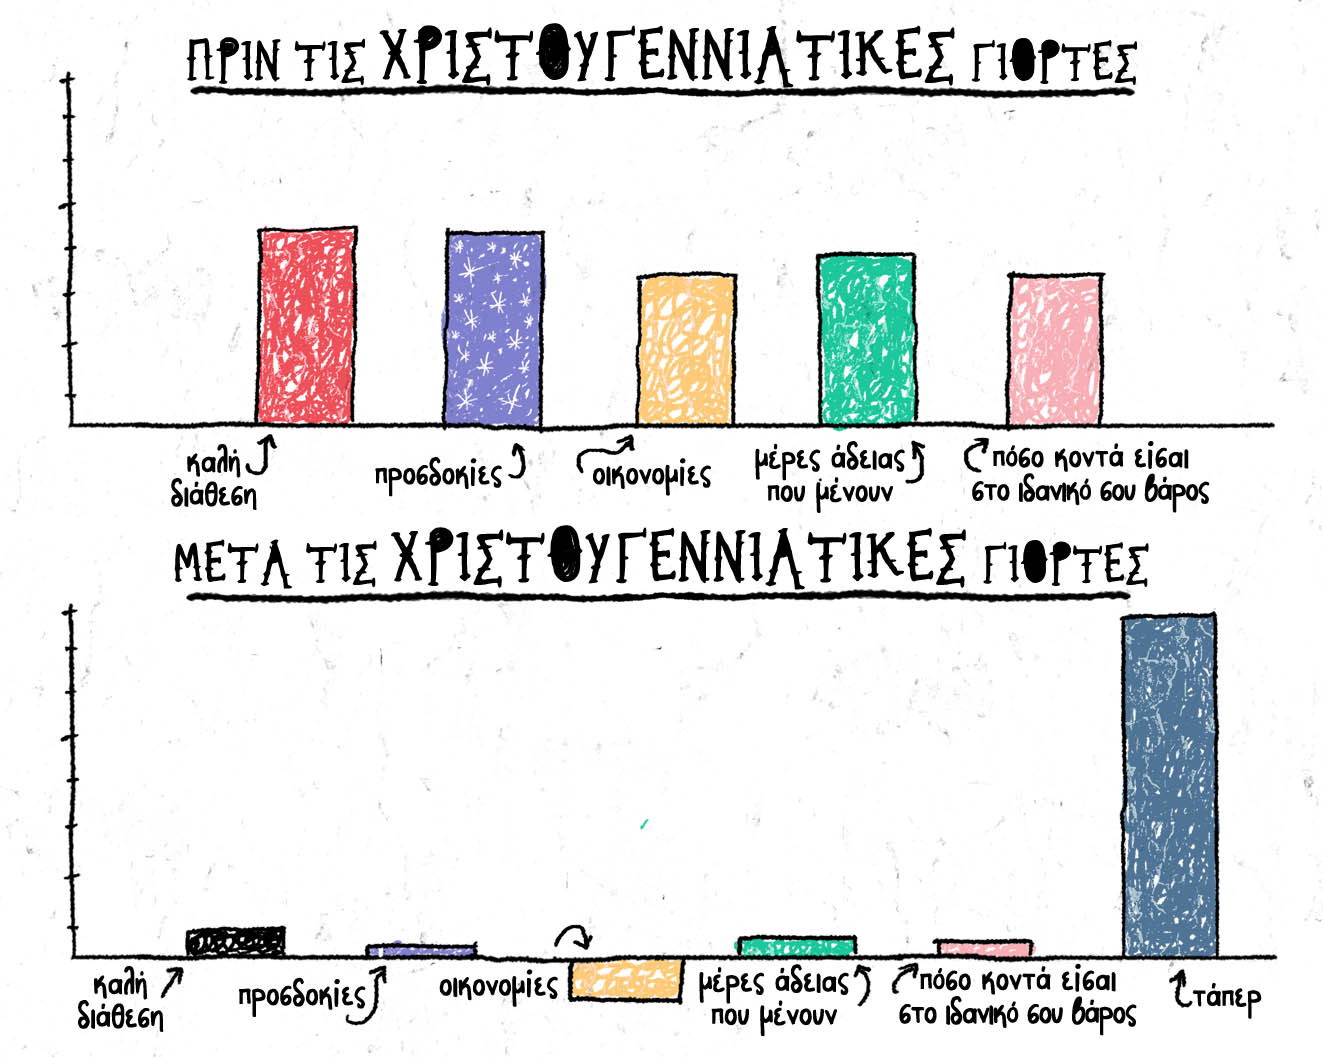 ΠΡΙΝ ΤΙΣ ΧΡΙΣΤΟΥΓΕΝΝΙΑΤΙΚΕΣ ΓΙΟΡΤΕΣ
καλή
διάθεση
προσδοκίες
οικονομίες
μέρες άδειας
που μένουν
πόσο κοντά είσαι
στο ιδανικό σου βάρος
ΜΕΤΑ ΤΙΣ ΧΡΙΣΤΟΥΓΕΝΝΙΑΤΙΚΕΣ ΓΙΟΡΤΕΣ
καλή
διάθεση
προσδοκίες
οικονομίες
μέρες άδειας
που μένουν
πόσο κοντά είσαι
στο ιδανικό σου βάρος
τάπερ